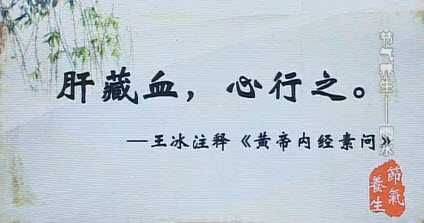 肝藏血，心行之。
—王冰注释《黄帝内经素问》
节气养生——雨水
節氣
養生